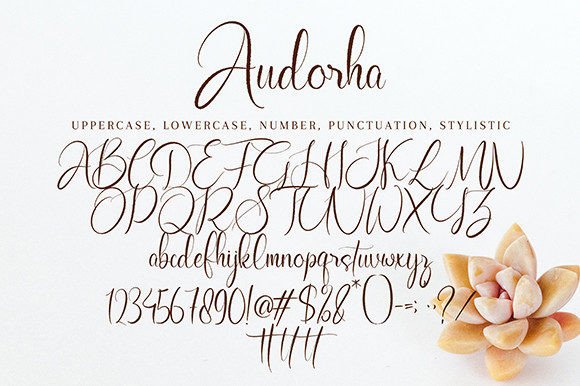 Audorha
UPPERCASE, LOWERCASE, NUMBER, PUNCTUATION, STYLISTIC
ABCDEFGHIJKLMN
OPQRSTUVWXYZ
abcdefhijklmnopqrstuvwxyz
1234567890!@#$%&*()-=;:,.?/